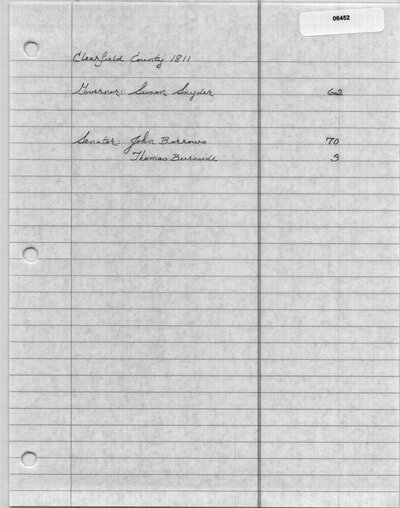 06452
Clearfield County 1811
Governor: Simon Snyder 62
Senator: John Borrows 70
Thomas Burnside 3